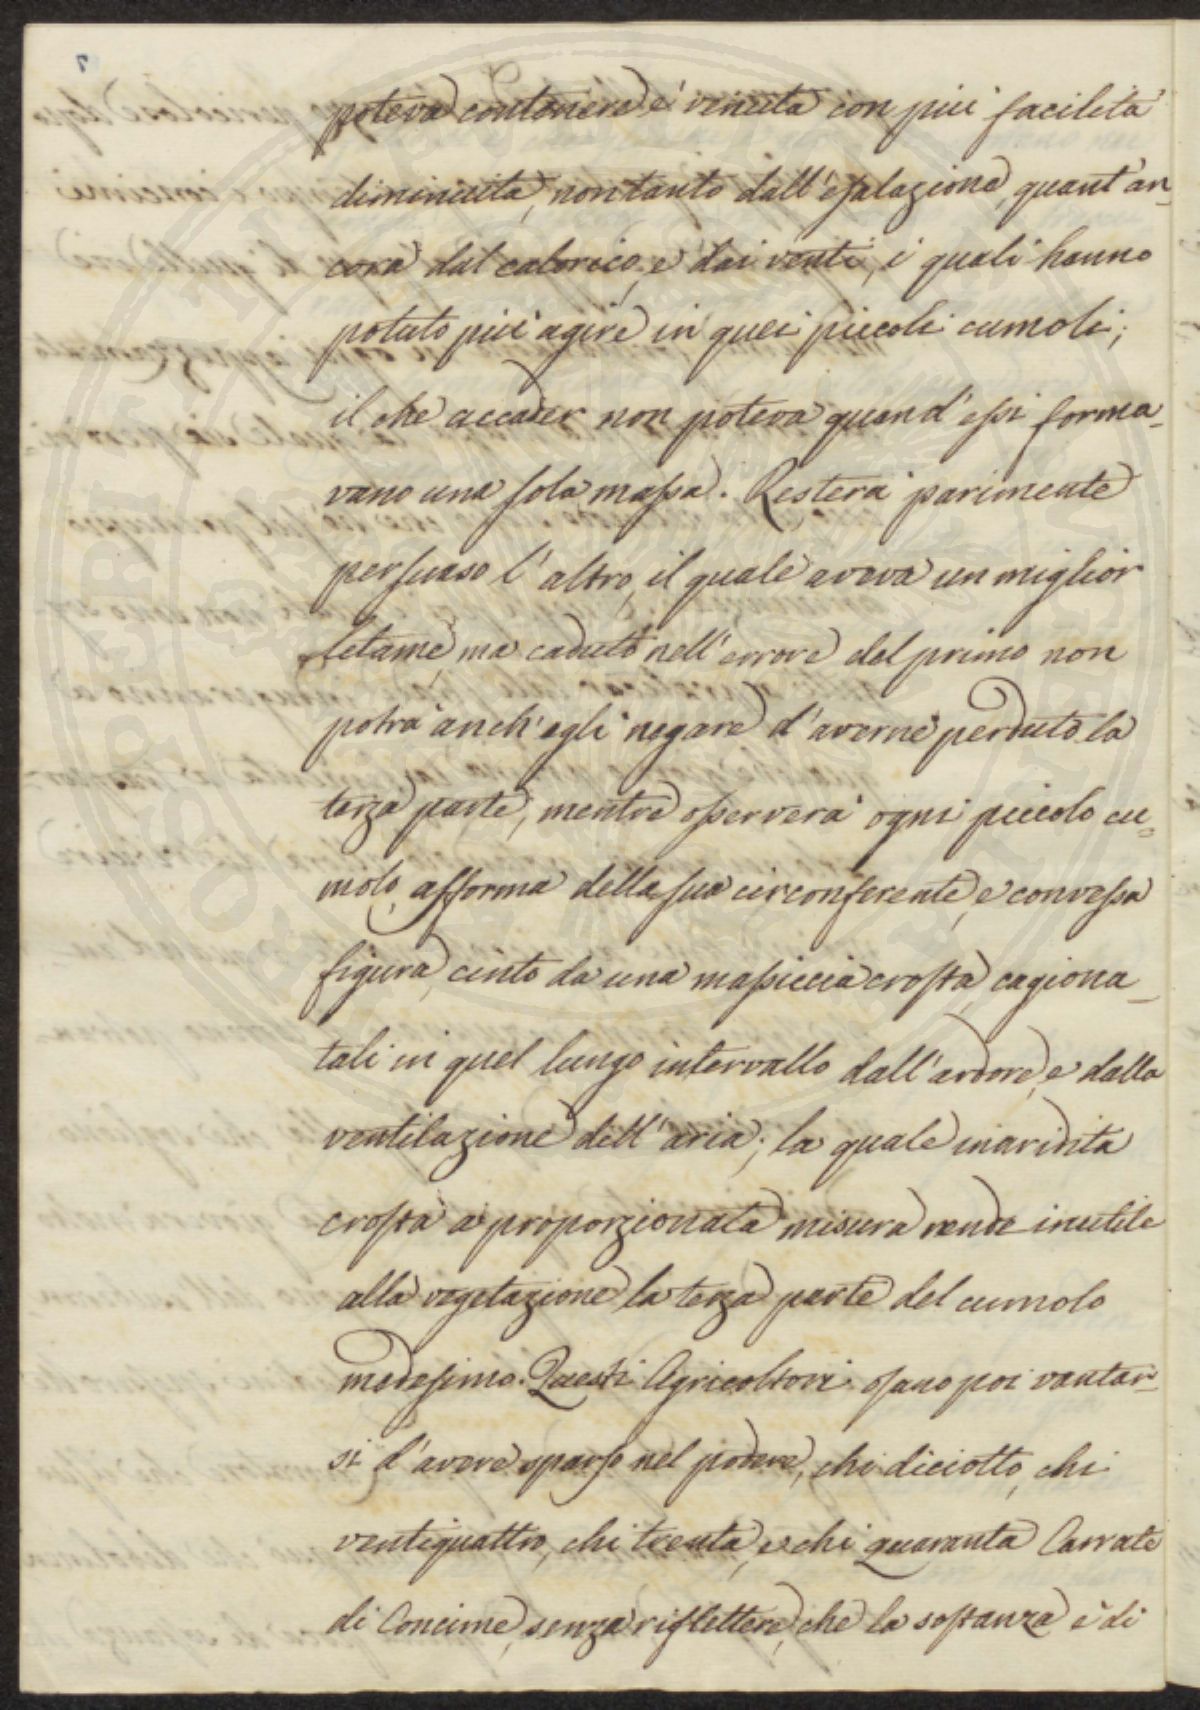 poteva contenere è venuta con più facilità
diminuita, non tanto dall'esalazione, quant'an-
cora dal calorico, e dai venti, i quali hanno
potuto più agire in quei piccoli cumoli;
il che accader non poteva quand'essi forma-
vano una sola massa. Resterà parimente
persuaso l'altro, il quale aveva un miglior
letame, ma caduto nell'errore del primo non
potrà anch'egli negare d'averne perduto la
terza parte, mentre osserverà ogni piccolo cu-
molo, afforma della sua circonferente, e convessa
figura, cinto da una massiccia crosta, cagiona-
tali in quel lungo intervallo dall'ardore, e dalla
ventilazione dell'aria; la quale inaridita
crosta a proporzionata misura rende inutile
alla vegetazione la terza parte del cumolo
medesimo. Questi Agricoltori osano poi vantar-
si d'avere sparso nel podere, chi diciotto, chi
ventiquattro, chi trenta, e chi quaranta Carrate
di Concime, senza riflettere, che la sostanza è di